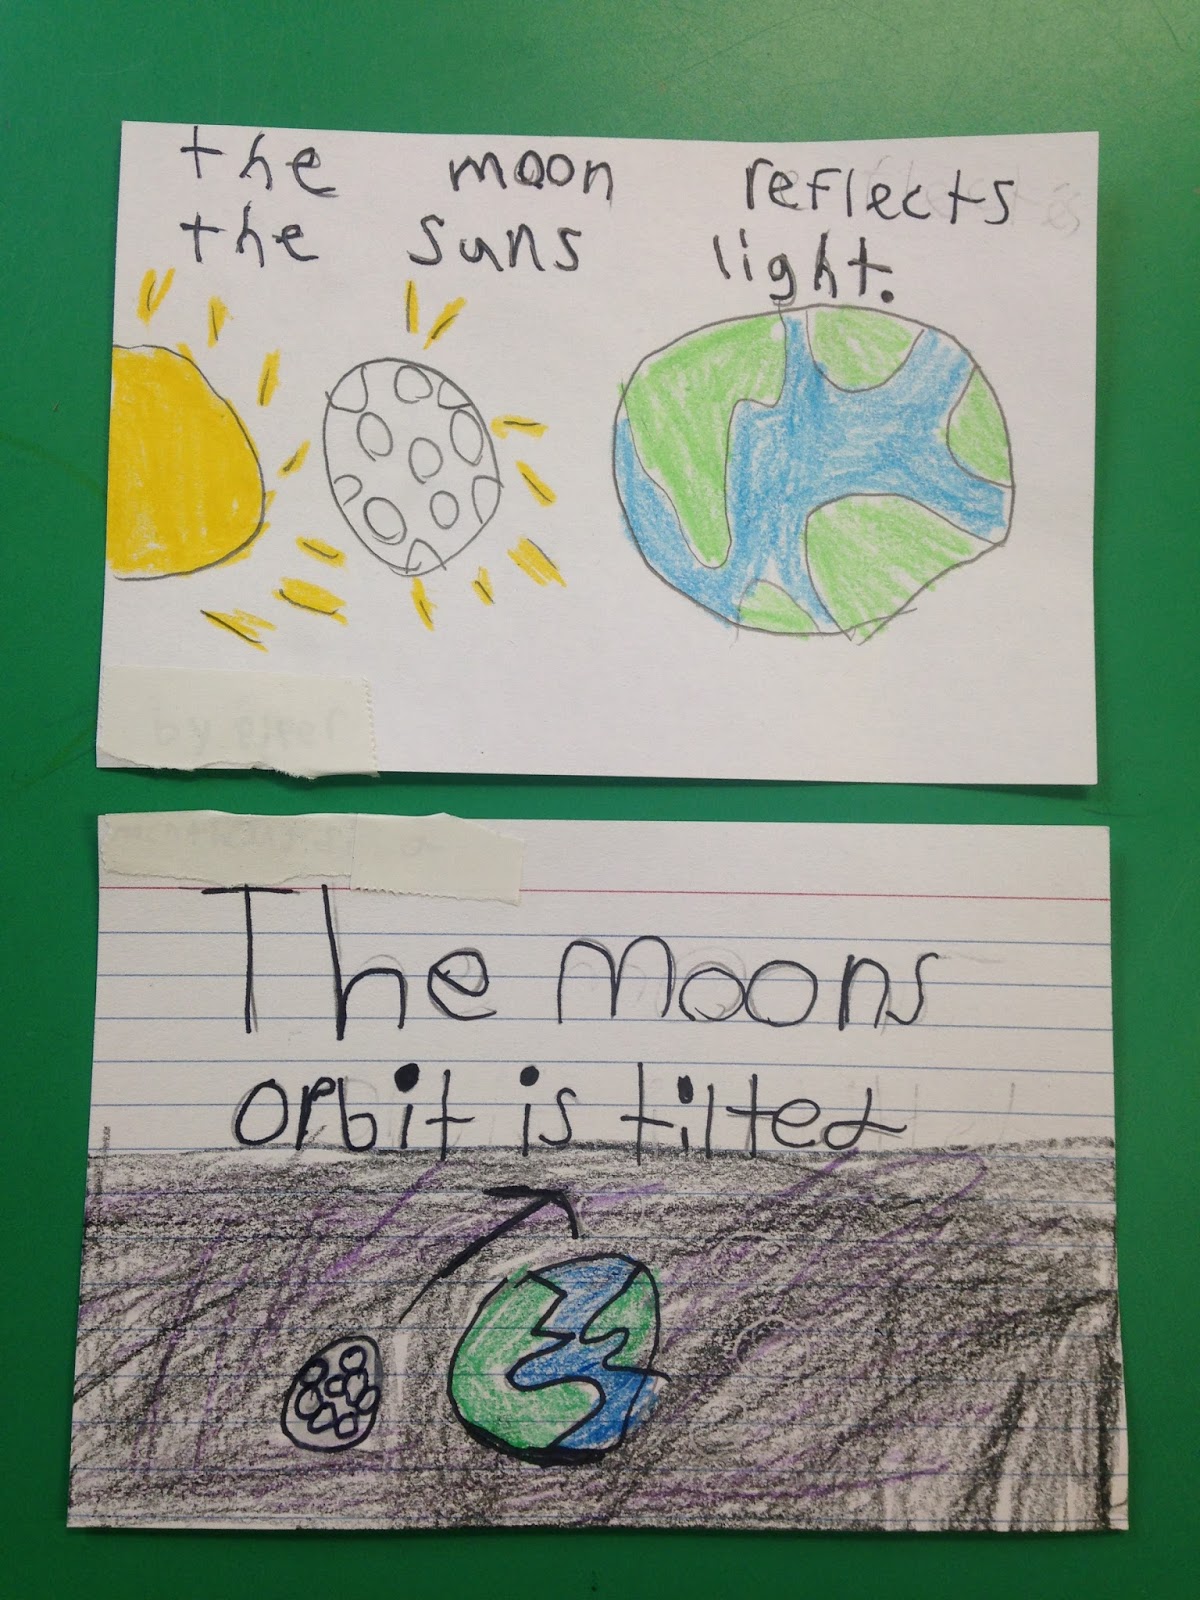 the moon reflects
the suns light.
The moons
orbit is tilted